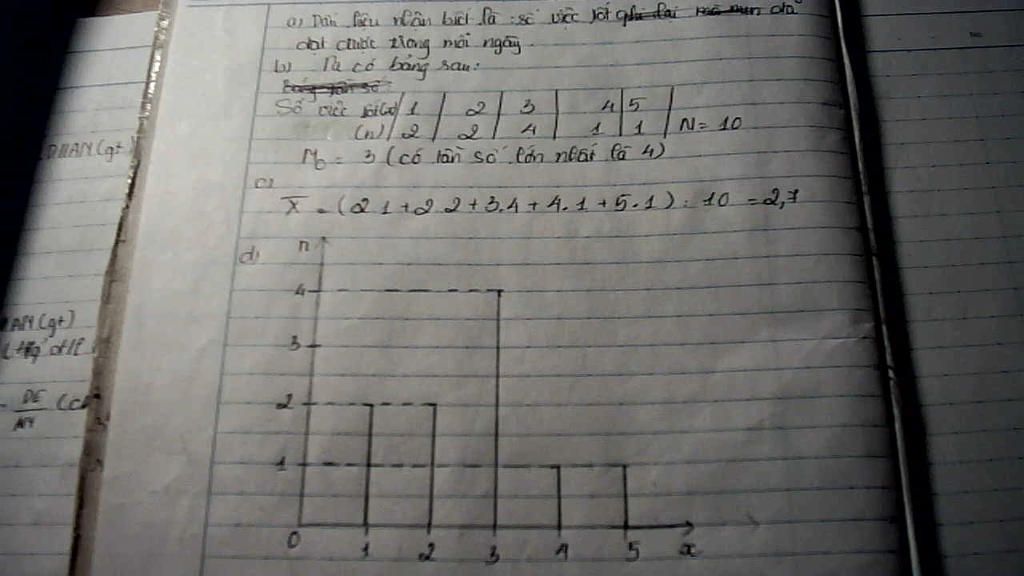 a) Dấu hiệu nhận biết là : số việc tốt đã
đạt được trong mỗi ngày.
b) Ta có bảng sau:
Số việc tốt (x) 1 2 3 4 5
(n) 2 2 4 1 1 N = 10
M₀ = 3 (có tần số lớn nhất là 4)
c)
X̄ = (2.1 + 2.2 + 3.4 + 4.1 + 5.1) : 10 = 2,7
d)
n
4
3
2
1
0 1 2 3 4 5 x
(gt)
APM (gt)
DE
AM